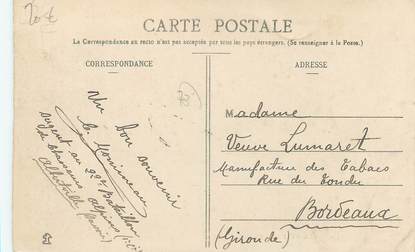 20 €
CARTE POSTALE
La Correspondance au recto n'est pas acceptée par tous les pays étrangers. (Se renseigner à la Poste.)
CORRESPONDANCE
ADRESSE
Un bon souvenir
Sergent au 22e Bataillon
de Chasseurs alpins
Albertville (Savoie)
Madame
Veuve Lumaret
Manufacture des Tabacs
Rue du Tondu
Bordeaux
(Gironde)